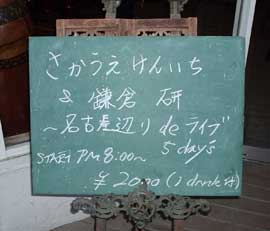 さかうえけんいち
& 鎌倉 研
～名古屋辺り de ライブ
5 days
START PM 8:00～
¥2000 (1 drink 付)